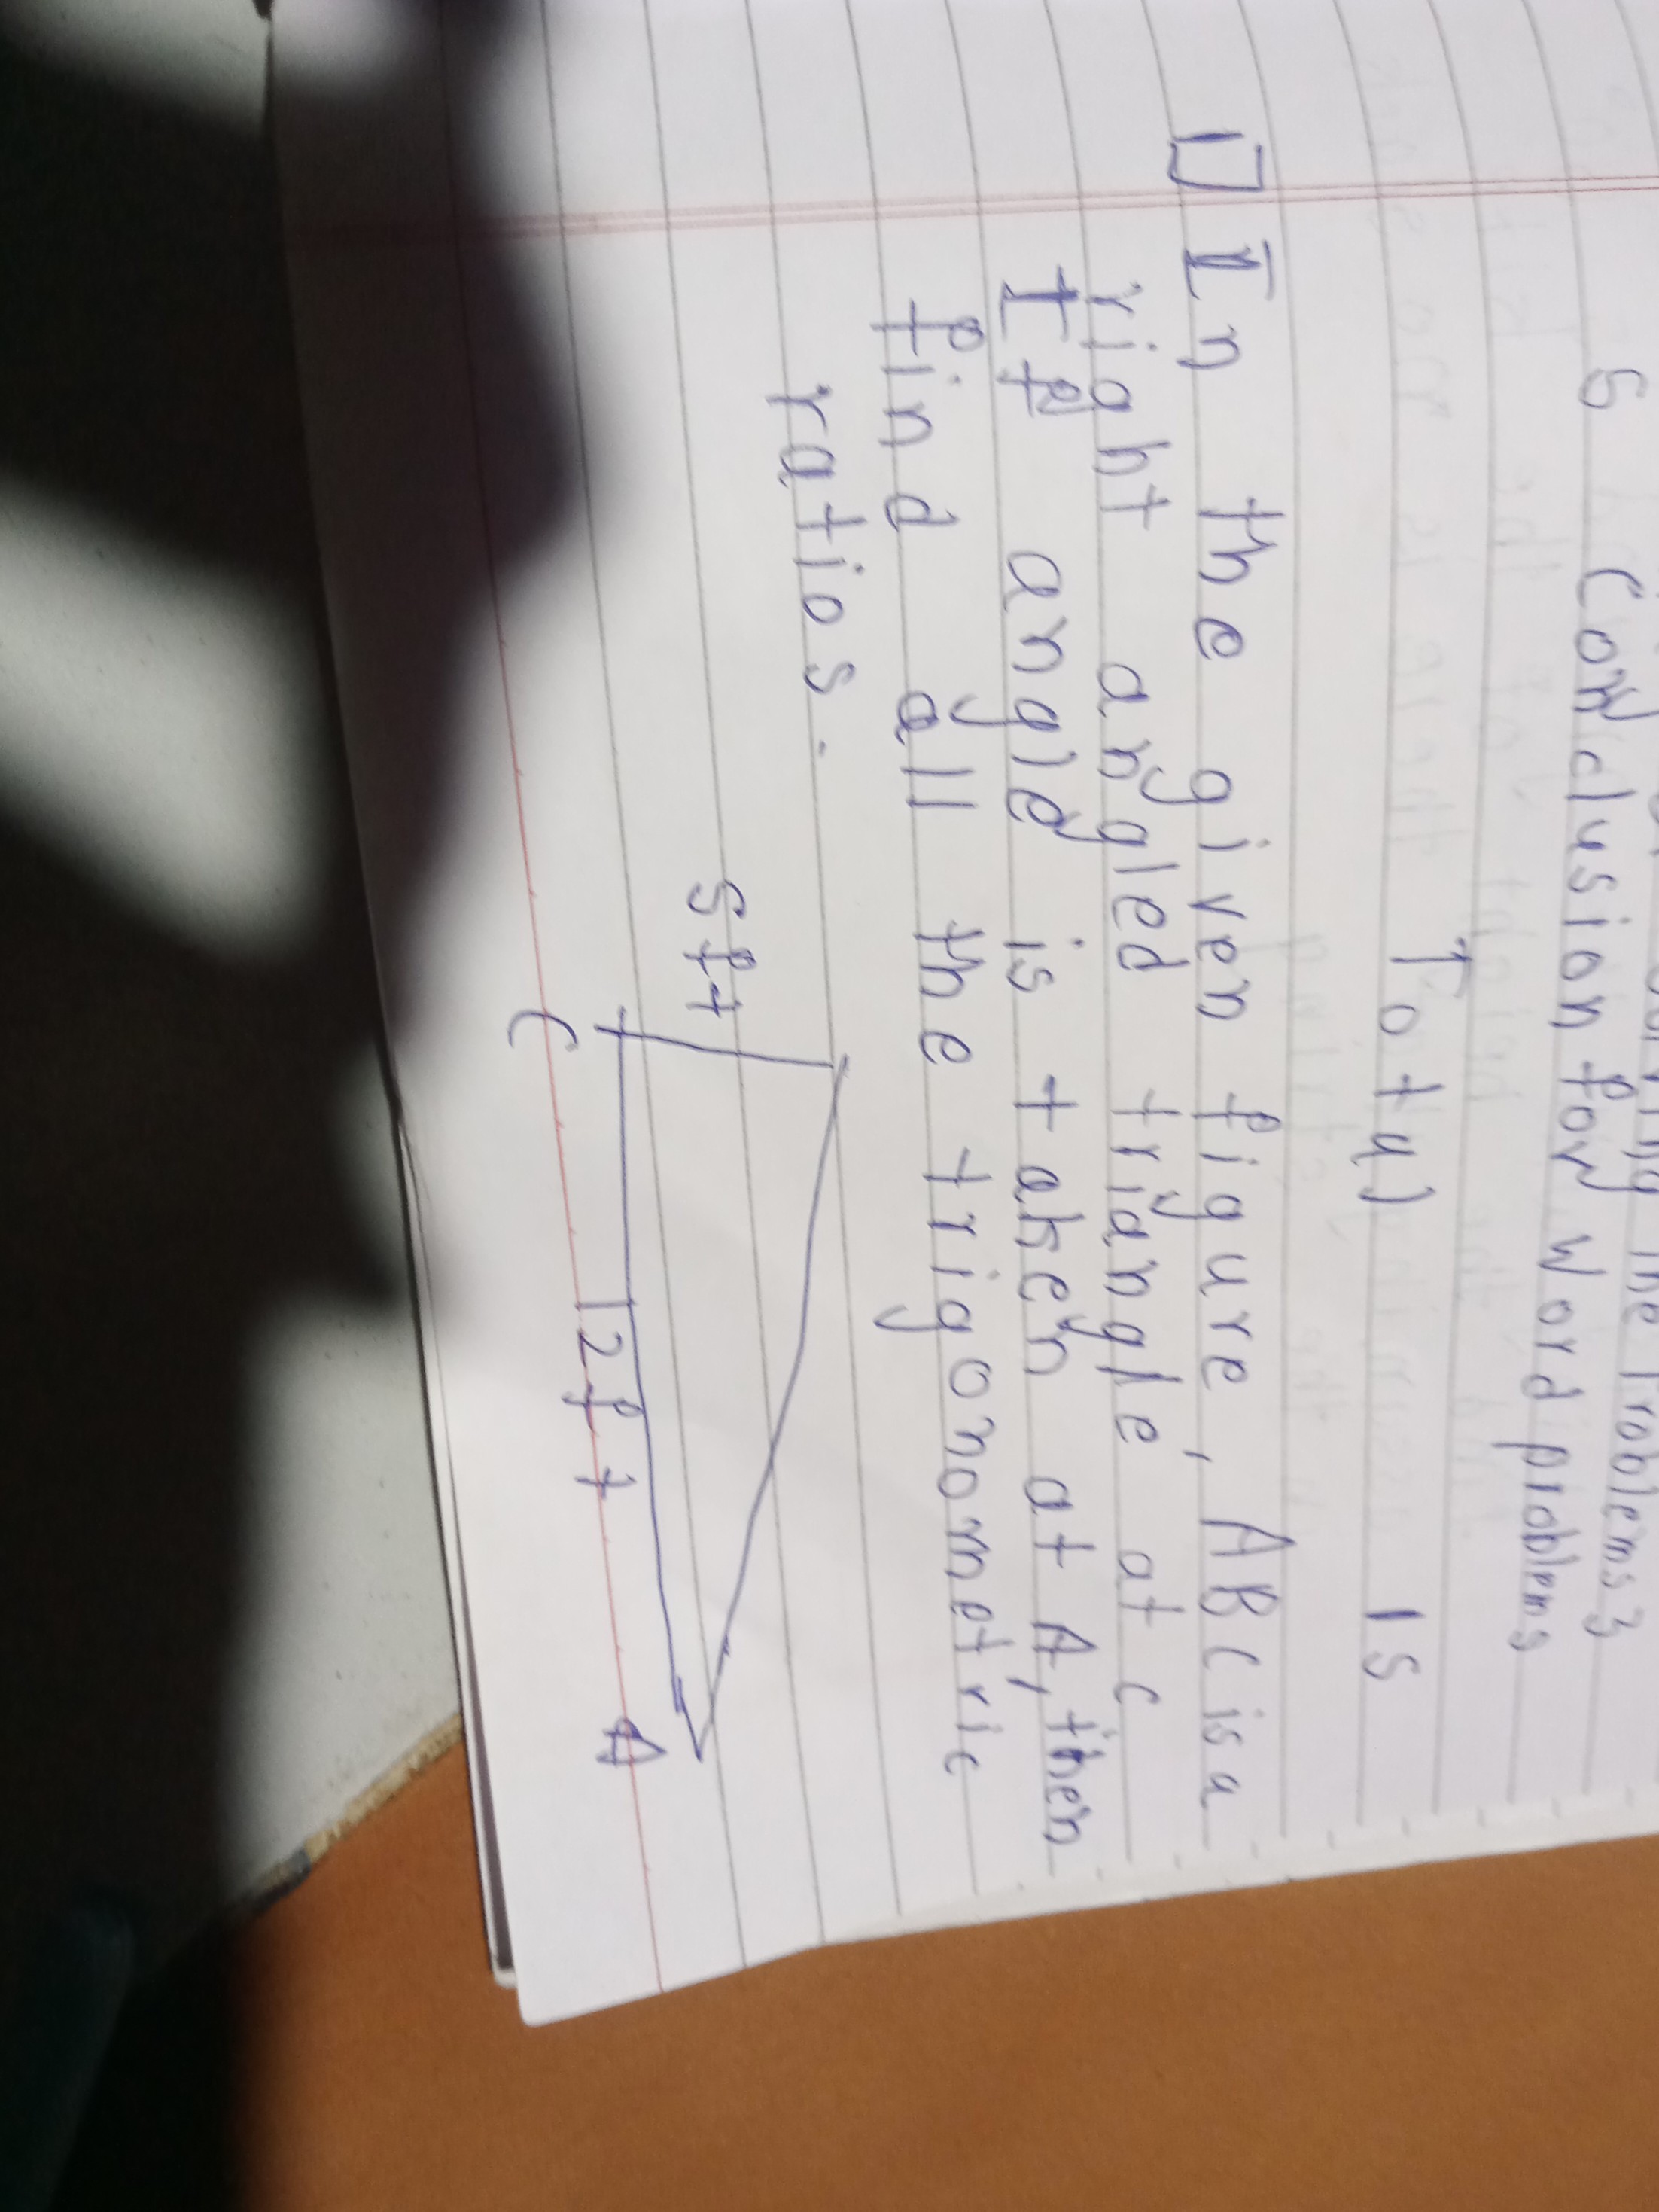 The Problems 3
5 Conclusion for Word problems
Total 15
1] In the given figure, ABC is a
right angled triangle at C
If angle is taken at A, then
find all the trigonometric
ratios.
5ft
C 12ft A